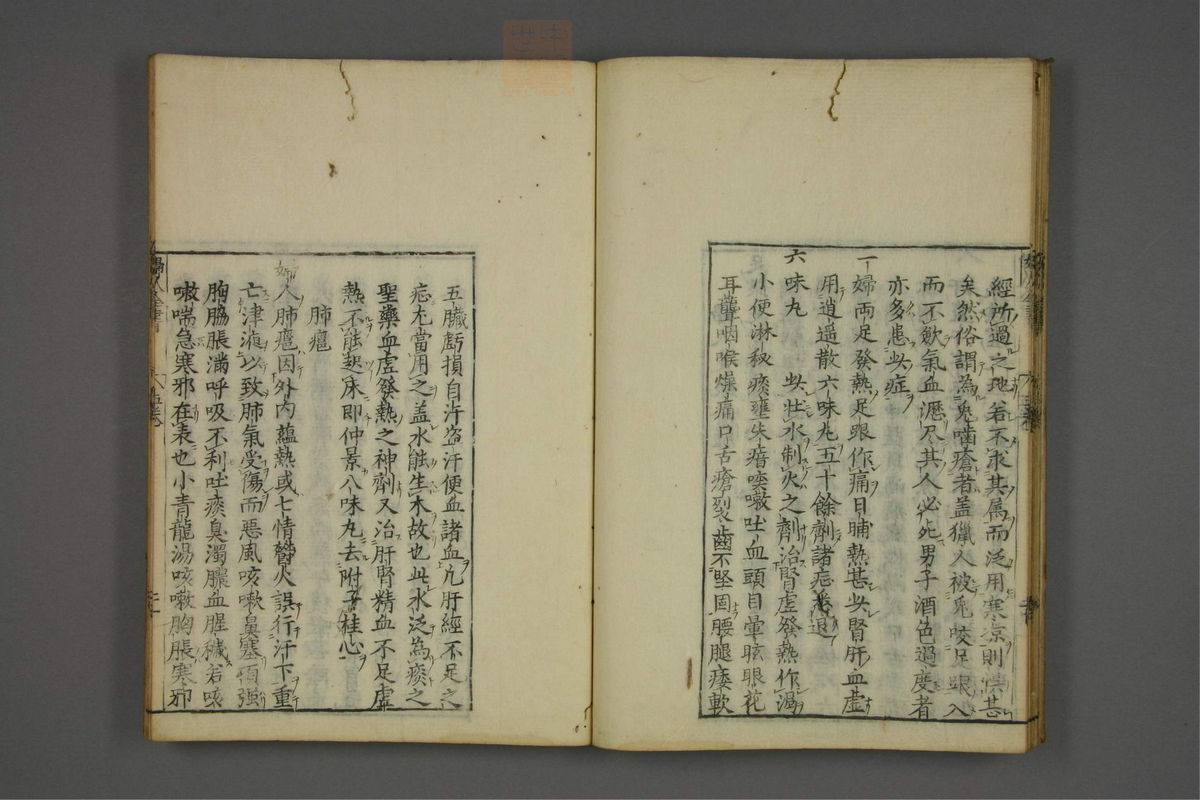 經所過之地若不求其属而泛用寒凉則悞甚
矣然俗謂為兎嚙瘡者盖獵人被兎咬足跟入
而不斂氣血瀝尽其人必死男子酒色過度者
亦多患此症
一婦両足發熱足跟作痛日晡熱甚此腎肝血虚
用逍遥散六味丸五十餘劑諸症悉退
六味丸　此壯水制火之劑治腎虚發熱作渇
小便淋秘痰壅失瘖咳嗽吐血頭目暈眩眼花
耳聾咽喉燥痛口舌瘡裂齒不堅固腰腿痿軟
五臟虧損自汗盗汗便血諸血凢肝經不足之
症尤當用之盖水能生木故也此水泛為痰之
聖藥血虚發熱之神劑又治肝腎精血不足虚
熱不能起床即仲景八味丸去附子桂心
肺癰
婦人肺癰因外内蘊熱或七情欝火誤行汗下重
亡津液以致肺氣受傷而惡風咳嗽鼻塞項强
胸脇脹滿呼吸不利吐痰臭濁膿血腥穢若咳
嗽喘急寒邪在表也小青龍湯咳嗽胸脹寒邪